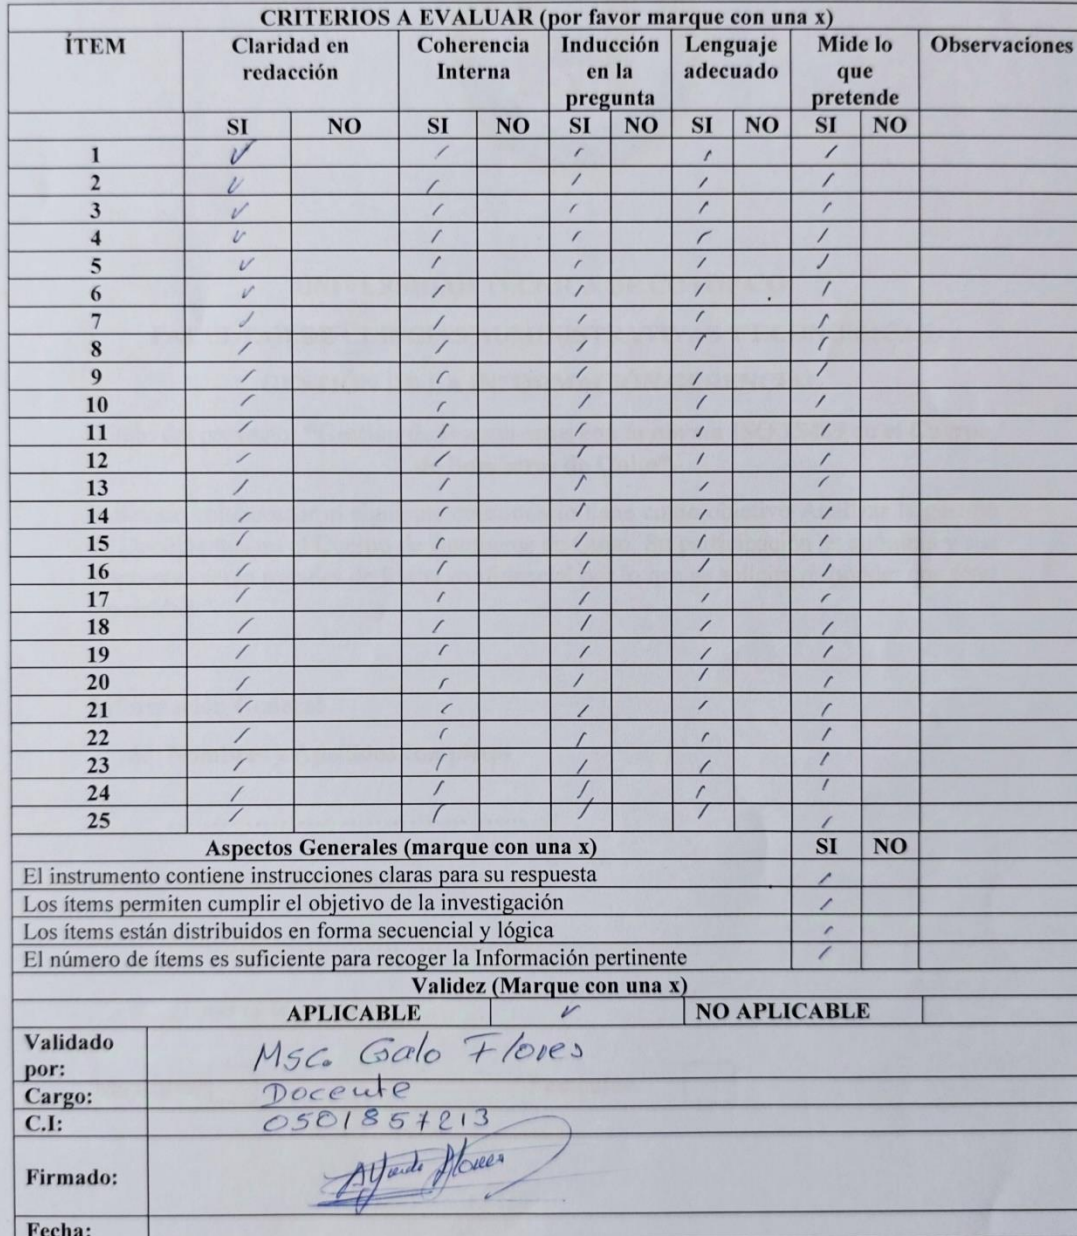 CRITERIOS A EVALUAR (por favor marque con una x)
ÍTEM Claridad en redacción Coherencia Interna Inducción en la pregunta Lenguaje adecuado Mide lo que pretende Observaciones
SI NO SI NO SI NO SI NO SI NO
1 ✓ / / / /
2 ✓ / / / /
3 ✓ / / / /
4 ✓ / / / /
5 ✓ / / / /
6 ✓ / / / /
7 ✓ / / / /
8 / / / / /
9 / / / / /
10 / / / / /
11 / / / / /
12 / / / / /
13 / / / / /
14 / / / / /
15 / / / / /
16 / / / / /
17 / / / / /
18 / / / / /
19 / / / / /
20 / / / / /
21 / / / / /
22 / / / / /
23 / / / / /
24 / / / / /
25 / / / / /
Aspectos Generales (marque con una x) SI NO
El instrumento contiene instrucciones claras para su respuesta /
Los ítems permiten cumplir el objetivo de la investigación /
Los ítems están distribuidos en forma secuencial y lógica /
El número de ítems es suficiente para recoger la Información pertinente /
Validez (Marque con una x)
APLICABLE ✓ NO APLICABLE
Validado por: MSc. Galo Flores
Cargo: Docente
C.I: 0501857213
Firmado:
Fecha: